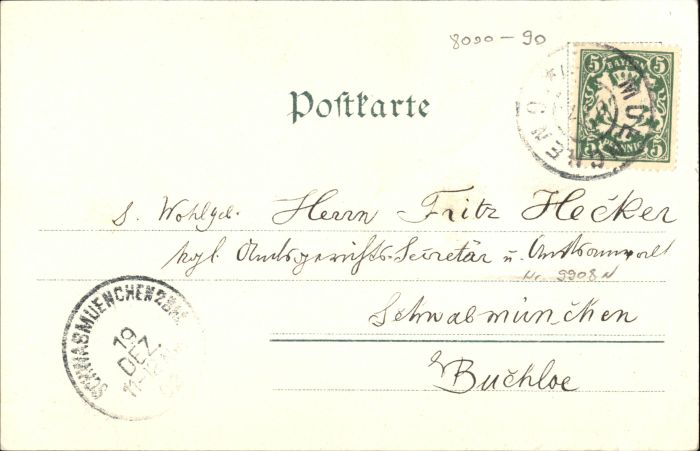 8000-90
5 BAYERN 5
5 PFENNIG 5
MUENCHEN
Postkarte
S. Wohlgeb. Herrn Fritz Hecker
kgl. Amtsgerichts-Secretär u. Amtsanwalt
Nr. 9908 N
Schwabmünchen
Buchloe
SCHWABMUENCHEN
19
DEZ.